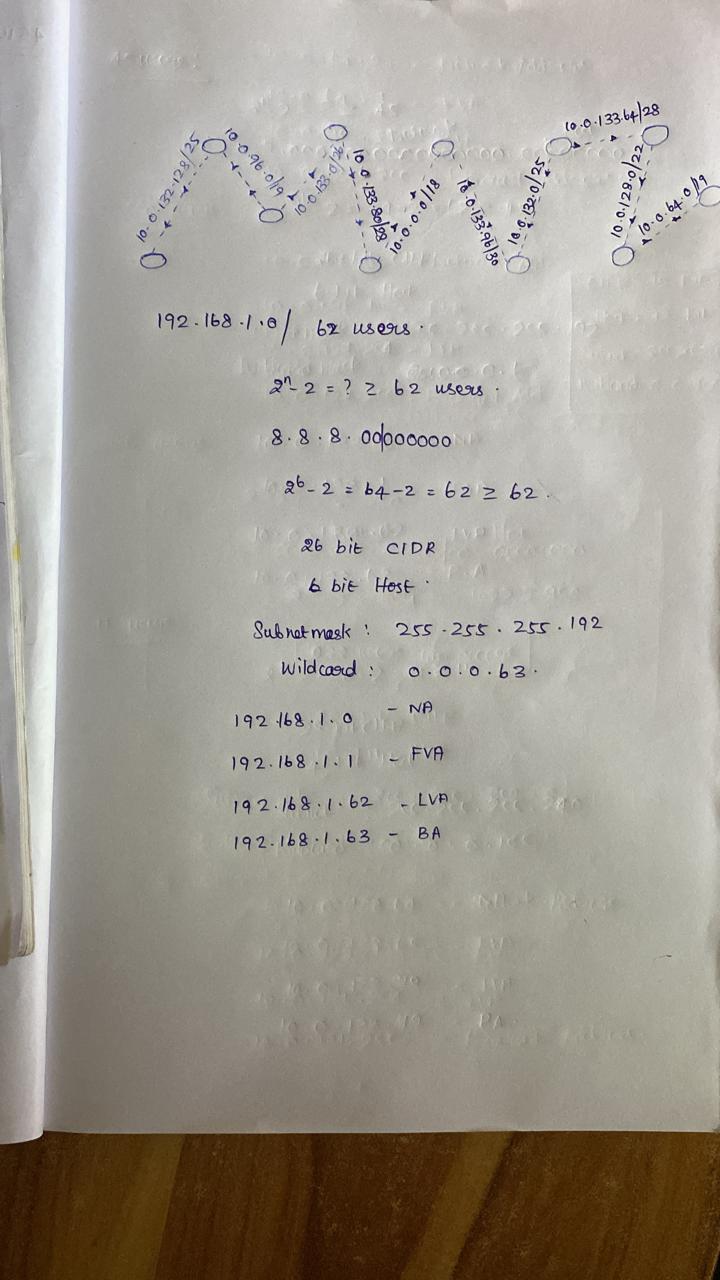 10.0.132.128/25
10.0.96.0/19
10.0.133.0/26
10.0.133.80/28
10.0.0.0/18
10.0.133.96/30
10.0.132.0/25
10.0.133.64/28
10.0.128.0/22
10.0.64.0/19
192.168.1.0/ 62 users.
2ⁿ-2 = ? ≥ 62 users.
8.8.8.00|000000
2⁶-2 = 64-2 = 62 ≥ 62.
26 bit CIDR
6 bit Host.
Subnetmask : 255.255.255.192
Wildcard : 0.0.0.63.
192.168.1.0 - NA
192.168.1.1 - FVA
192.168.1.62 - LVA
192.168.1.63 - BA